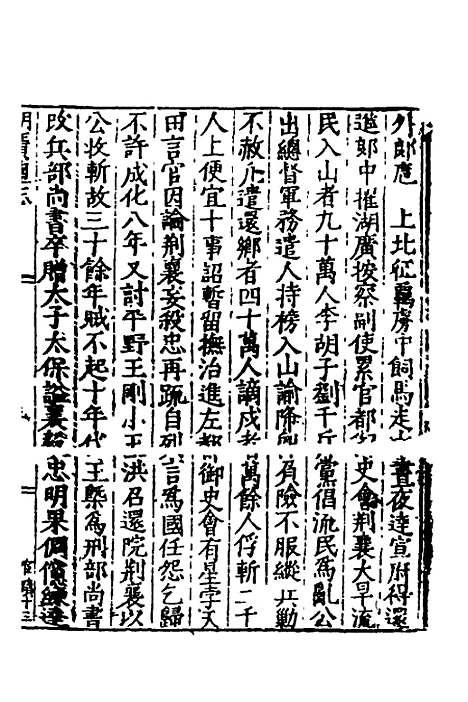 外郎扈　上北征羈虜中飼馬走　晝夜達宣府得還
進郎中擢湖廣按察副使累官都　史會荊襄大旱流
民入山者九十萬人李胡子劉千斤　黨倡流民為亂公
出總督軍務遣人持榜入山諭降　負險不服縱兵勦
不赦凡遣還鄉者四十萬人謫戍者　萬餘人俘斬二千
人上便宜十事詔暫留撫治進左都御史會有星孛天
田言官因論荊襄妄殺忠再疏自列　言為國任怨乞歸
不許成化八年又討平野王剛小王洪召還院荊襄以
公收斬故三十餘年賊不起十年代王槩為刑部尚書
改兵部尚書卒贈太子太保諡襄毅忠明果倜儻練達